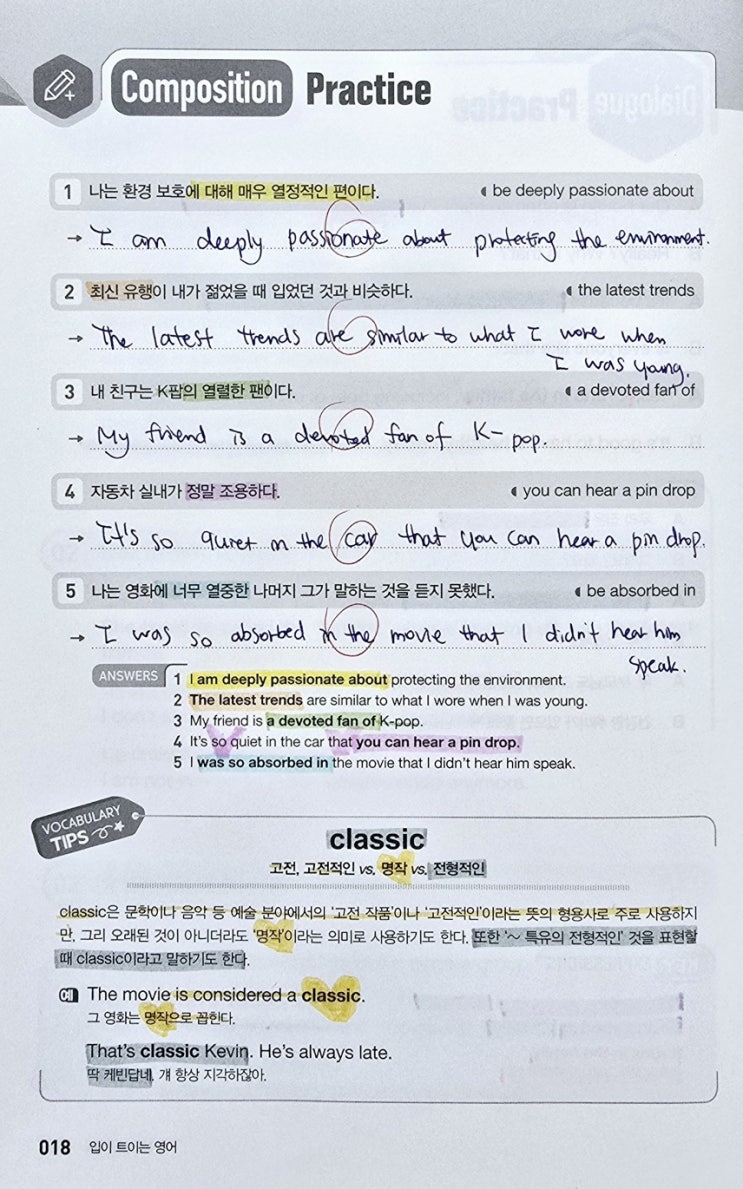 Composition Practice
1 나는 환경 보호에 대해 매우 열정적인 편이다. be deeply passionate about
→ I am deeply passionate about protecting the environment.
2 최신 유행이 내가 젊었을 때 입었던 것과 비슷하다. the latest trends
→ The latest trends are similar to what I wore when
I was young.
3 내 친구는 K팝의 열렬한 팬이다. a devoted fan of
→ My friend is a devoted fan of K-pop.
4 자동차 실내가 정말 조용하다. you can hear a pin drop
→ It's so quiet in the car that you can hear a pin drop.
5 나는 영화에 너무 열중한 나머지 그가 말하는 것을 듣지 못했다. be absorbed in
→ I was so absorbed in the movie that I didn't hear him
speak.
ANSWERS 1 I am deeply passionate about protecting the environment.
2 The latest trends are similar to what I wore when I was young.
3 My friend is a devoted fan of K-pop.
4 It's so quiet in the car that you can hear a pin drop.
5 I was so absorbed in the movie that I didn't hear him speak.
VOCABULARY
TIPS
classic
고전, 고전적인 vs. 명작 vs. 전형적인
classic은 문학이나 음악 등 예술 분야에서의 '고전 작품'이나 '고전적인'이라는 뜻의 형용사로 주로 사용하지
만, 그리 오래된 것이 아니더라도 '명작'이라는 의미로 사용하기도 한다. 또한 '~ 특유의 전형적인' 것을 표현할
때 classic이라고 말하기도 한다.
예 The movie is considered a classic.
그 영화는 명작으로 꼽힌다.
That's classic Kevin. He's always late.
딱 케빈답네. 걔 항상 지각하잖아.
018 입이 트이는 영어